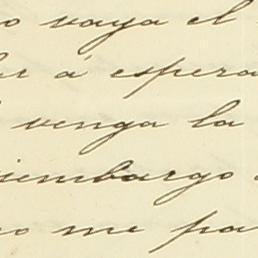 o vaya el
á espera
venga la
iembargo
o me pa